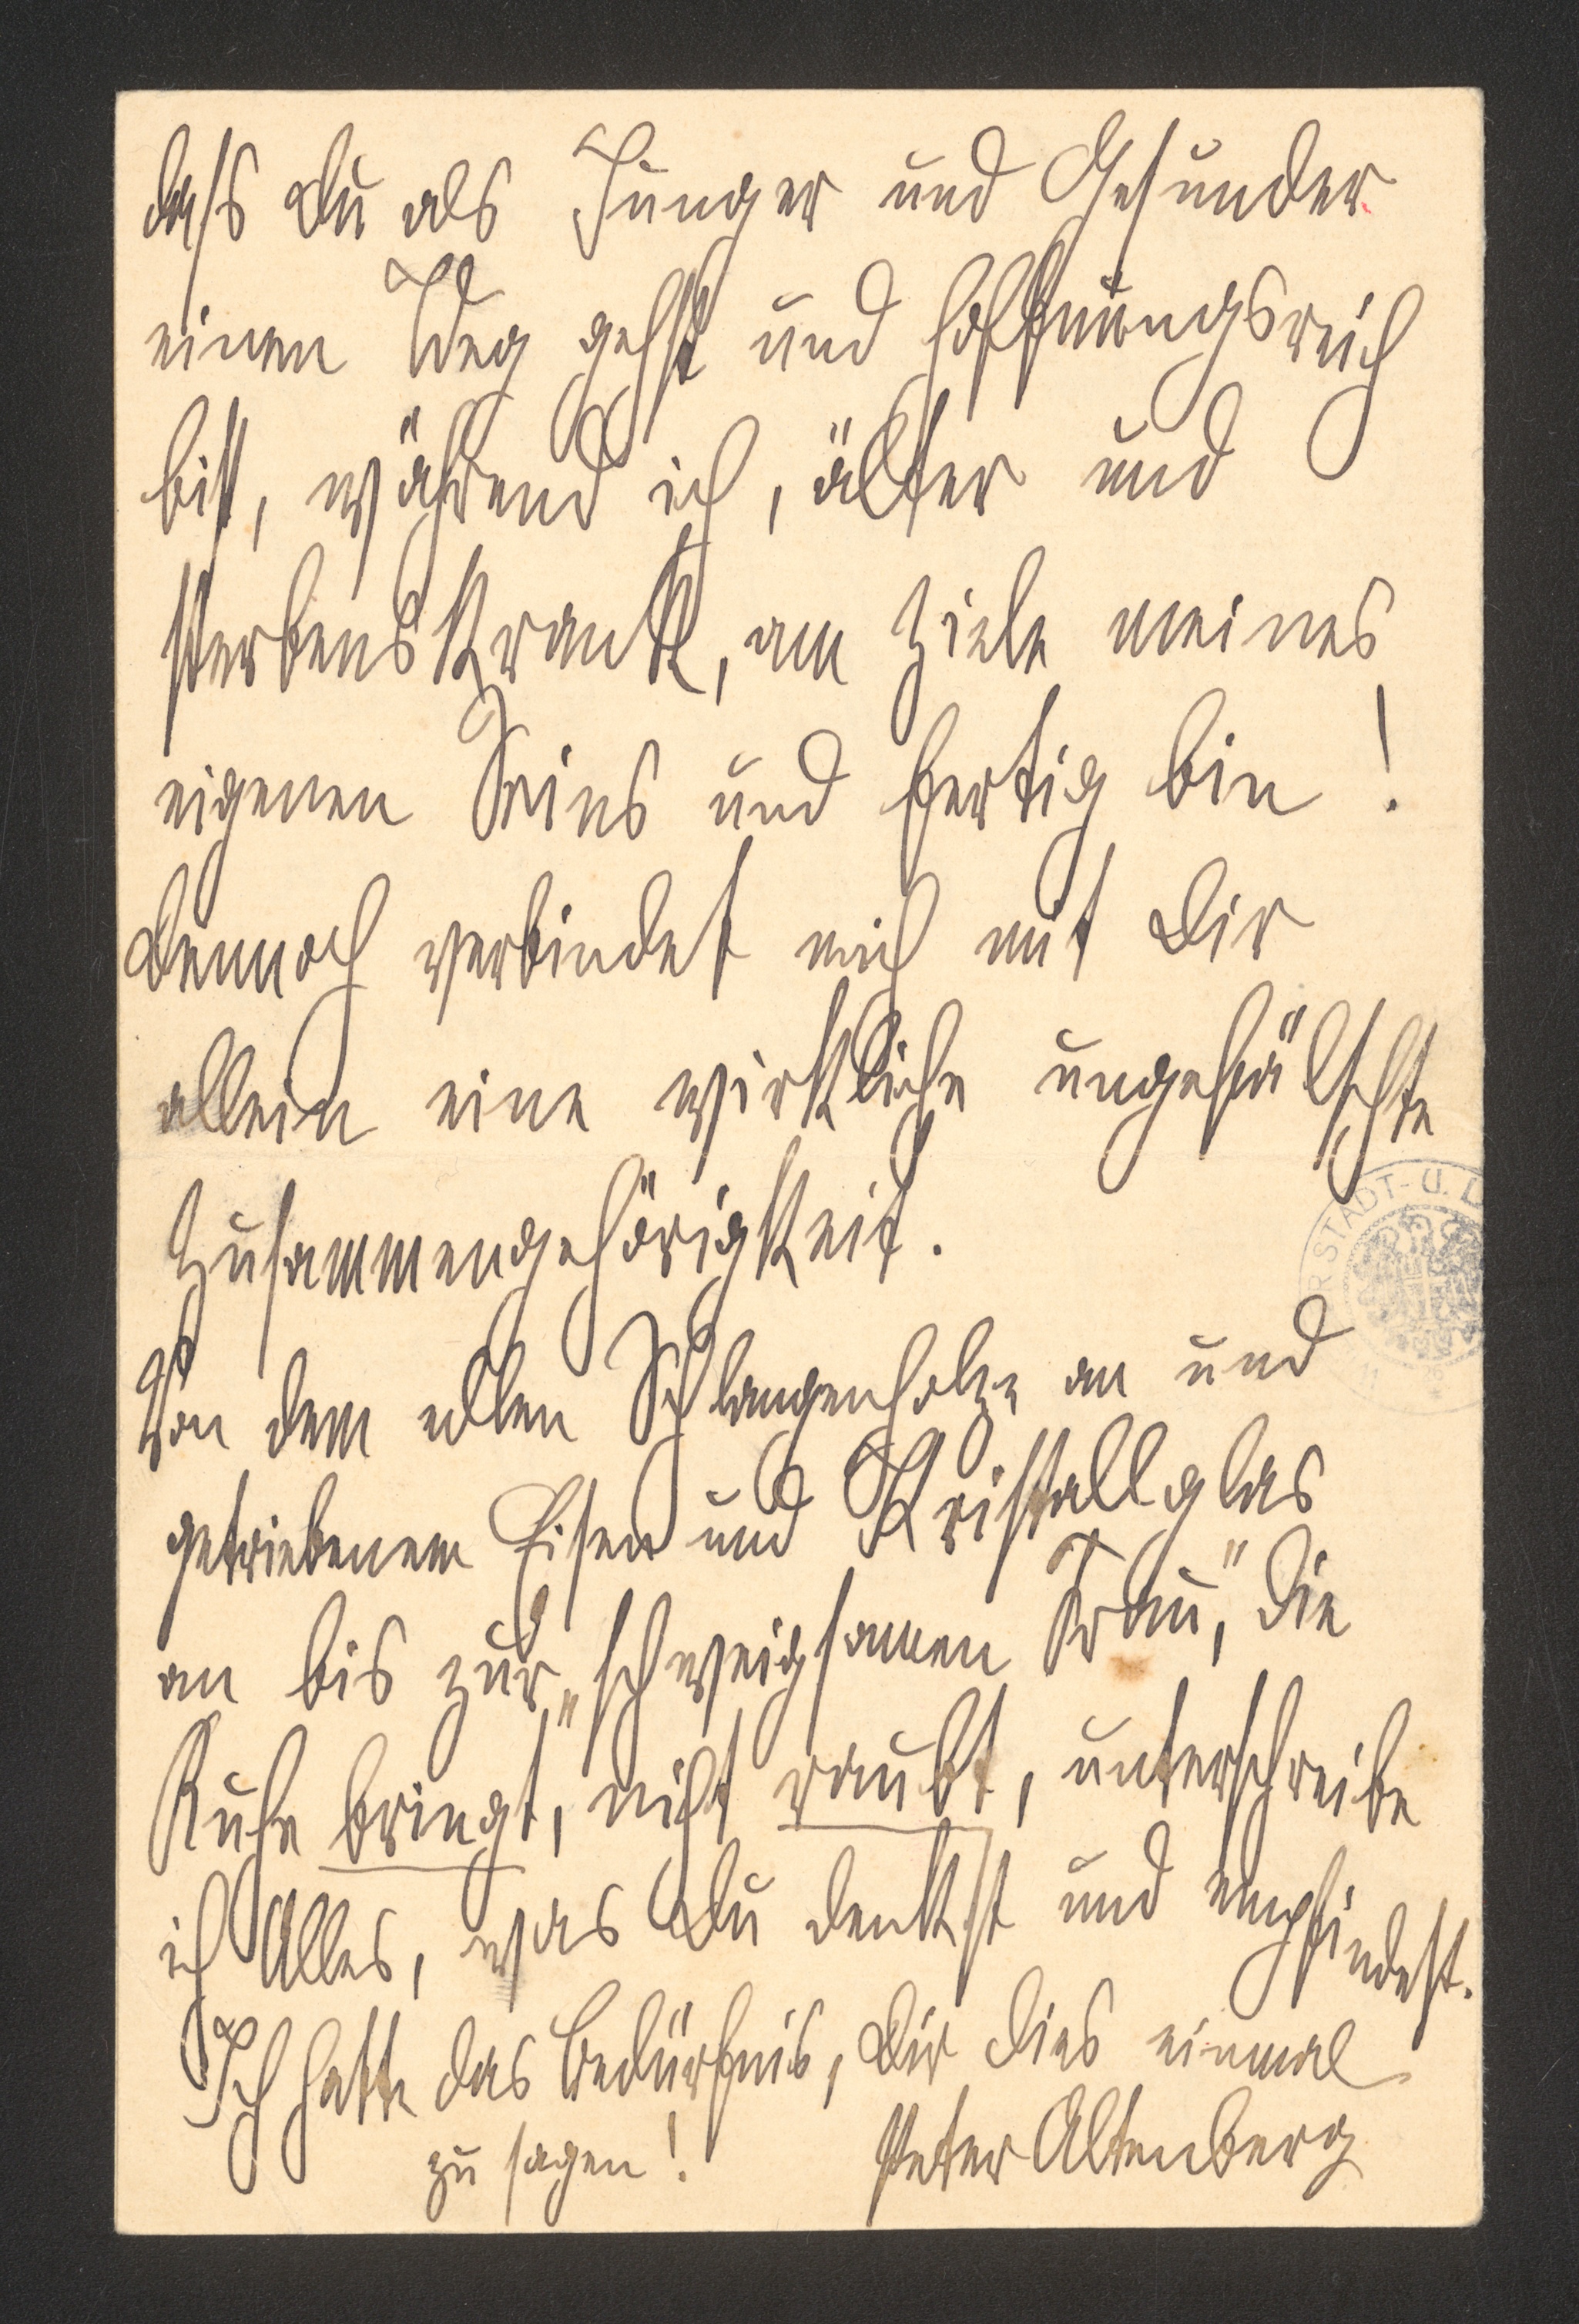 dass Du als Junger und Gesunder
einen Weg gehst und hoffnungsreich
bist, während ich, älter und
sterbenskrank, am Ziele meines
eigenen Seins und fertig bin!
Dennoch verbindet mich mit Dir
allein eine wirkliche ungefälschte
Zusammengehörigkeit.
Von dem edlen Schlangenholze an und
getriebenem Eisen und Kristallglas
an bis zur „schweigsamen Frau", die
Ruhe bringt, nicht raubt, unterschreibe
ich Alles, was Du denkst und empfindest.
Ich hatte das Bedürfnis, Dir dies einmal
zu sagen! Peter Altenberg
R STADT- U. L